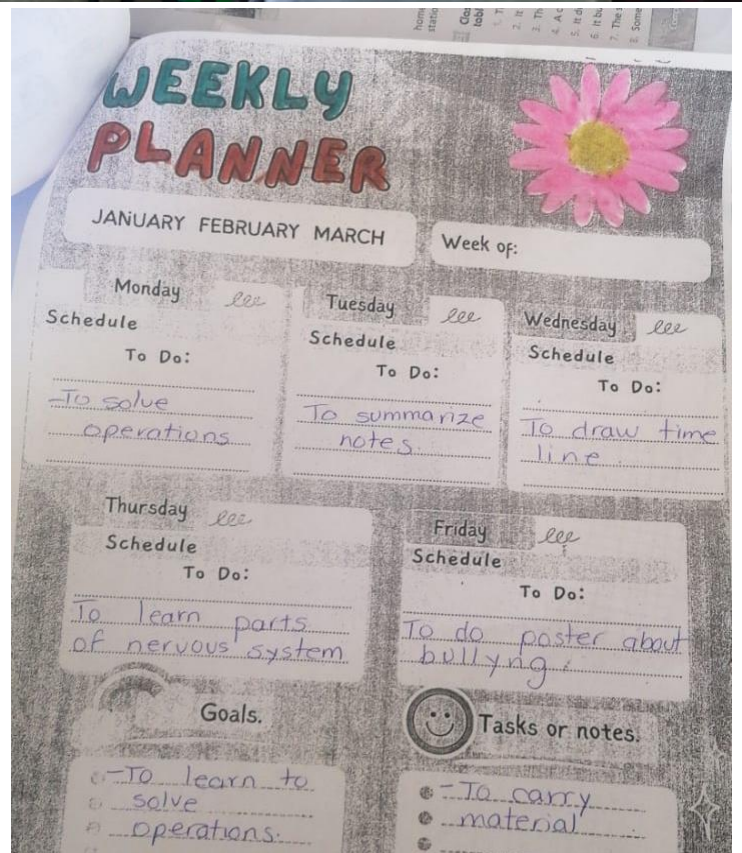 WEEKLY
PLANNER
JANUARY FEBRUARY MARCH
Week of:
Monday
Schedule
To Do:
-To solve
operations
Tuesday
Schedule
To Do:
To summarize
notes.
Wednesday
Schedule
To Do:
To draw time
line.
Thursday
Schedule
To Do:
To learn parts
of nervous system
Friday
Schedule
To Do:
To do poster about
bullyng.
Goals.
-To learn to
solve
operations.
Tasks or notes.
-To carry
material